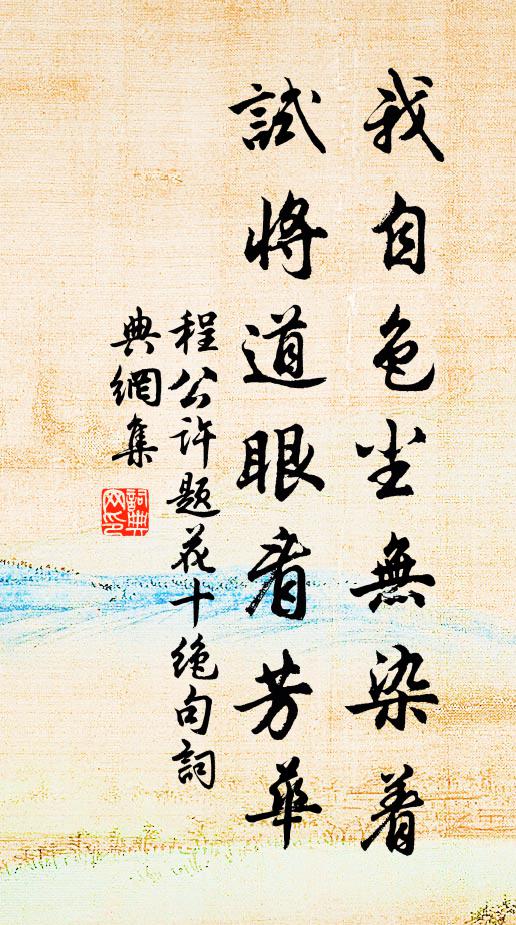 我自色尘無染着
試将道眼看芳華
程公许题花十绝句詞
典網集
詞典网印